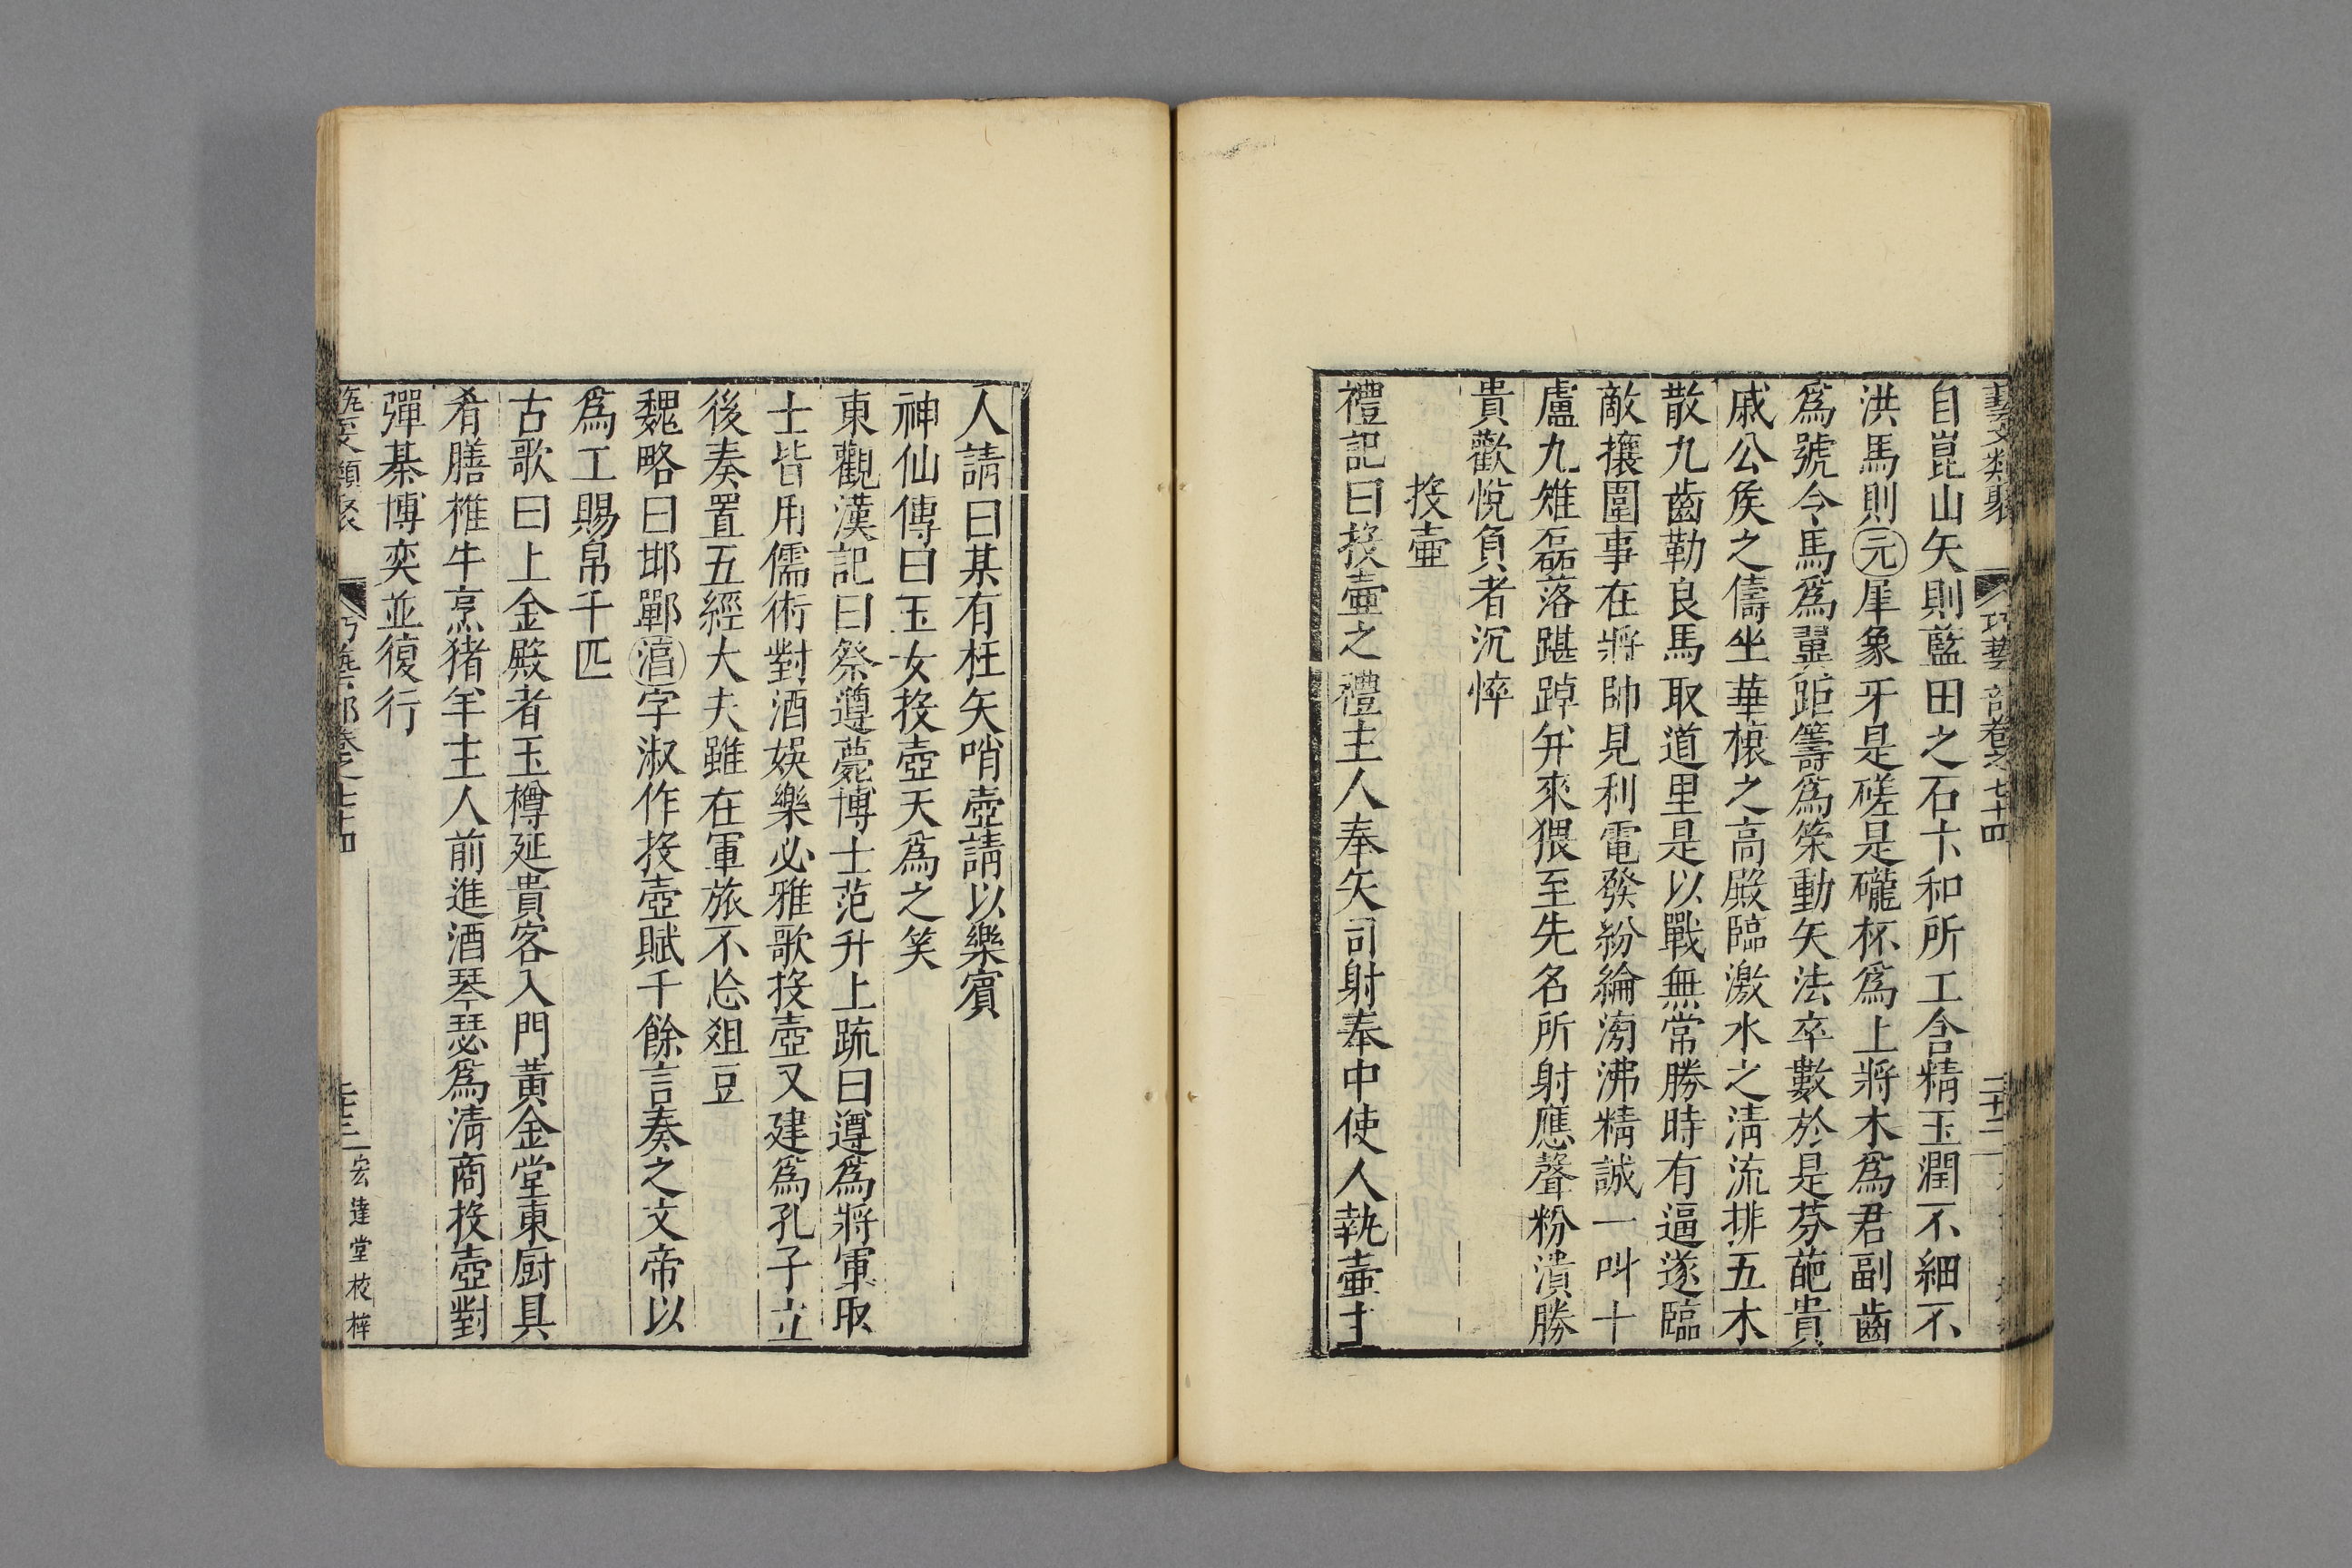 藝文類聚 巧藝部卷之七十四 二十二
自崑山矢則藍田之石卞和所工含精玉潤不細不
洪馬則元犀象牙是磋是礲杯爲上將木爲君副齒
爲號令馬爲翼距籌爲策動矢法卒數於是芬葩貴
戚公侯之儔坐華榱之高殿臨激水之淸流排五木
散九齒勒良馬取道里是以戰無常勝時有逼遂臨
敵攘圍事在將帥見利電發紛綸滂沸精誠一叫十
盧九雉磊落踸踔并來猥至先名所射應聲粉潰勝
貴歡悅負者沉悴
投壷
禮記曰投壷之禮主人奉矢司射奉中使人執壷主
人請曰某有枉矢哨壺請以樂賓
神仙傳曰玉女投壺天爲之笑
東觀漢記曰祭遵薨博士范升上疏曰遵爲將軍取
士皆用儒術對酒娛樂必雅歌投壺又建爲孔子立
後奏置五經大夫雖在軍旅不忘爼豆
魏略曰邯鄲淳字淑作投壺賦千餘言奏之文帝以
爲工賜帛千匹
古歌曰上金殿者玉樽延貴客入門黃金堂東廚具
肴膳椎牛烹猪羊主人前進酒琴瑟爲淸商投壺對
彈棊博奕並復行
藝文類聚 巧藝部卷之七十四 二十三 宏達堂校梓